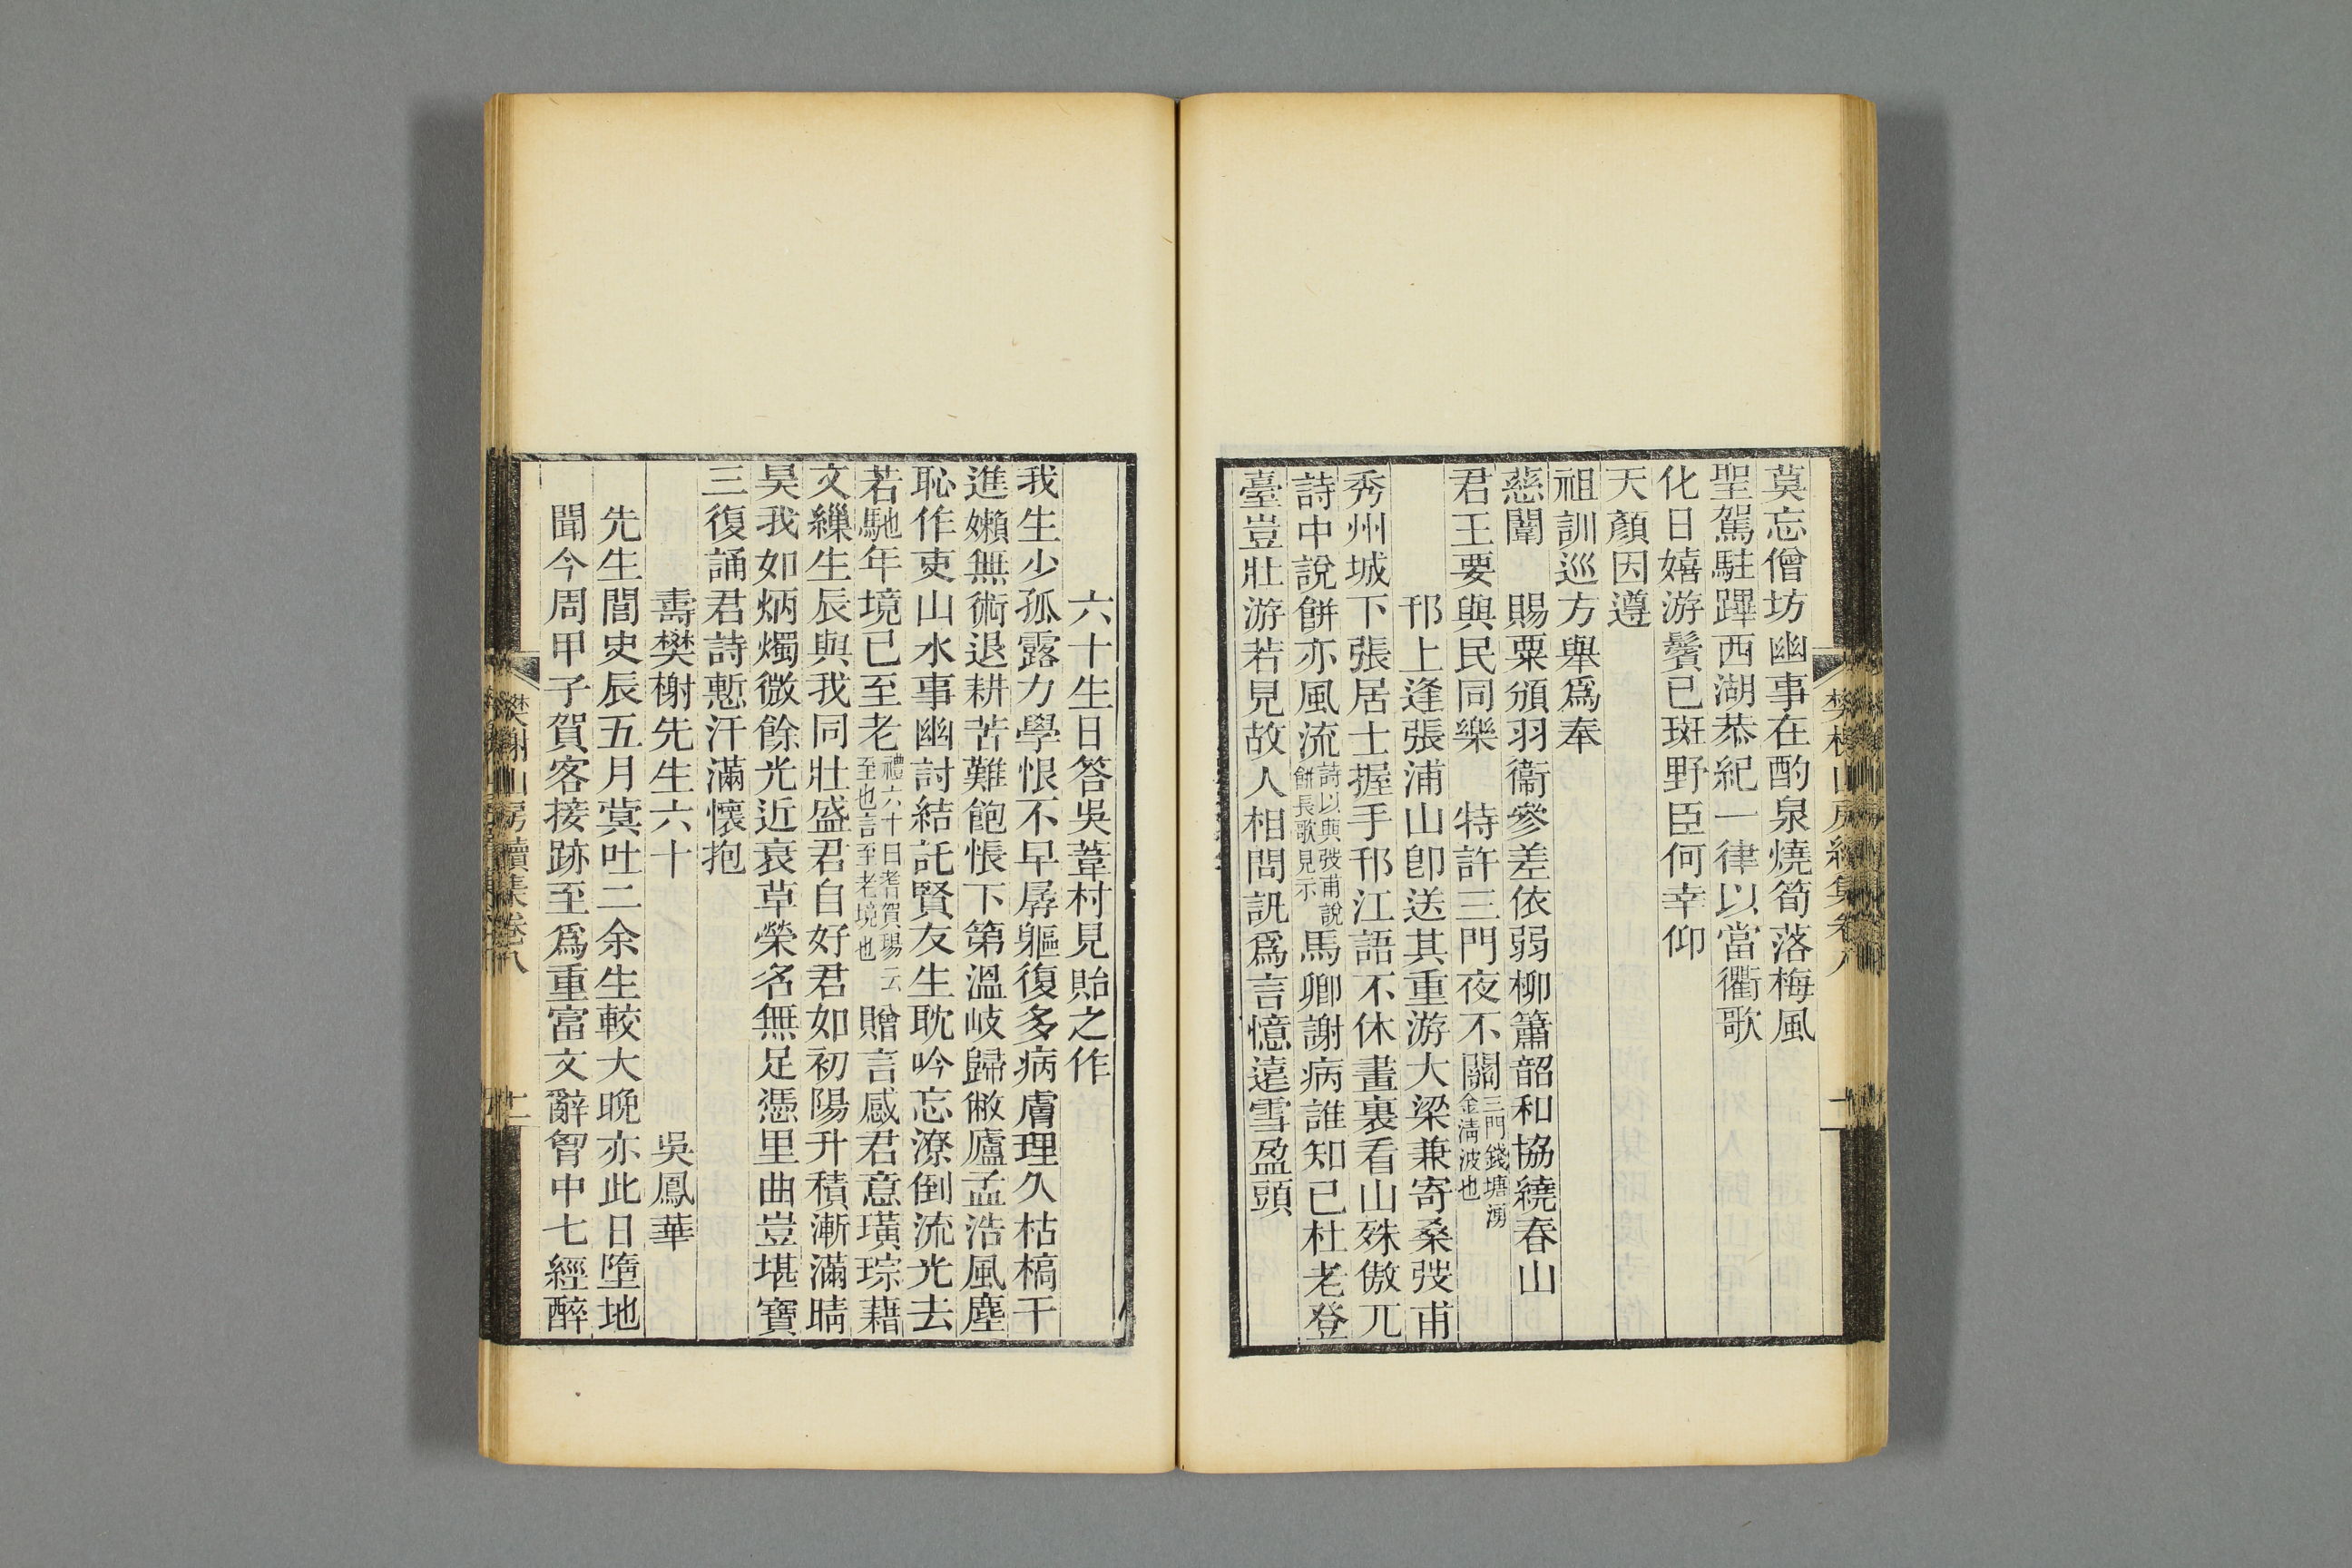 莫忘僧坊幽事在酌泉燒筍落梅風
聖駕駐蹕西湖恭紀一律以當衢歌
化日嬉游鬢已斑野臣何幸仰
天顏因遵
祖訓巡方舉爲奉
慈闈　賜粟頒羽衞參差依弱柳簫韶和協繞春山
君王要與民同樂　特許三門夜不關三門錢塘湧金淸波也
邗上逢張浦山卽送其重游大梁兼寄桑弢甫
秀州城下張居士握手邗江語不休畫裏看山殊傲兀
詩中說餅亦風流詩以與弢甫說餅長歌見示馬卿謝病誰知已杜老登
臺豈壯游若見故人相問訊爲言憶遠雪盈頭
六十生日答吳葦村見貽之作
我生少孤露力學恨不早孱軀復多病膚理久枯槁干
進嬾無術退耕苦難飽悵下第溫岐歸敝廬孟浩風塵
恥作吏山水事幽討結託賢友生耽吟忘潦倒流光去
若馳年境已至老禮六十曰耆賀瑒云至也言至老境也贈言感君意璜琮藉
文繅生辰與我同壯盛君自好君如初陽升積漸滿晴
昊我如炳燭微餘光近衰草榮名無足憑里曲豈堪寶
三復誦君詩慙汗滿懷抱
壽樊榭先生六十　吳鳳華
先生閭史辰五月蓂吐二余生較大晚亦此日墮地
聞今周甲子賀客接跡至爲重富文辭胷中七經醉
樊榭山房續集卷八